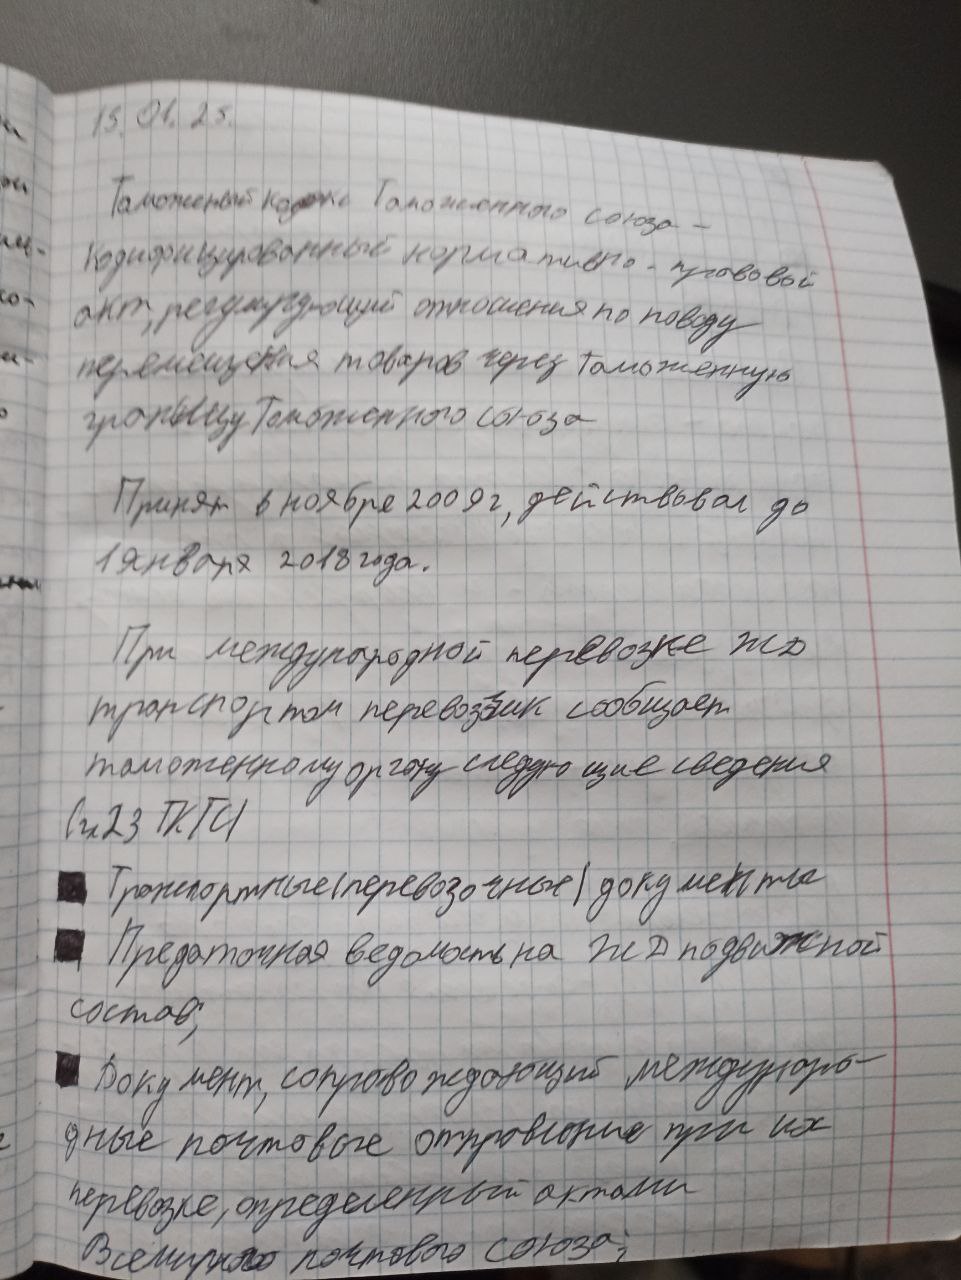 15.01.25.
Таможеный кодекс Таможенного союза -
Кодифицированный нормативно - правовой
акт, регулирующий отношения по поводу
перемещения товаров через Таможенную
границу Таможенного союза
Принят в ноябре 2009г, действовал до
1 января 2018 года.
При международной перевозке ЖД
транспортом перевозчик сообщает
таможенному органу следующие сведения
(гл 23 ТКТС)
■ Транспортные (перевозочные) документы
■ Предаточная ведомость на ЖД подвижной
состав;
■ Документ, сопровождающий междунаро-
дные почтовые отправление при их
перевозке, определенный актами
Всемирного почтового союза;